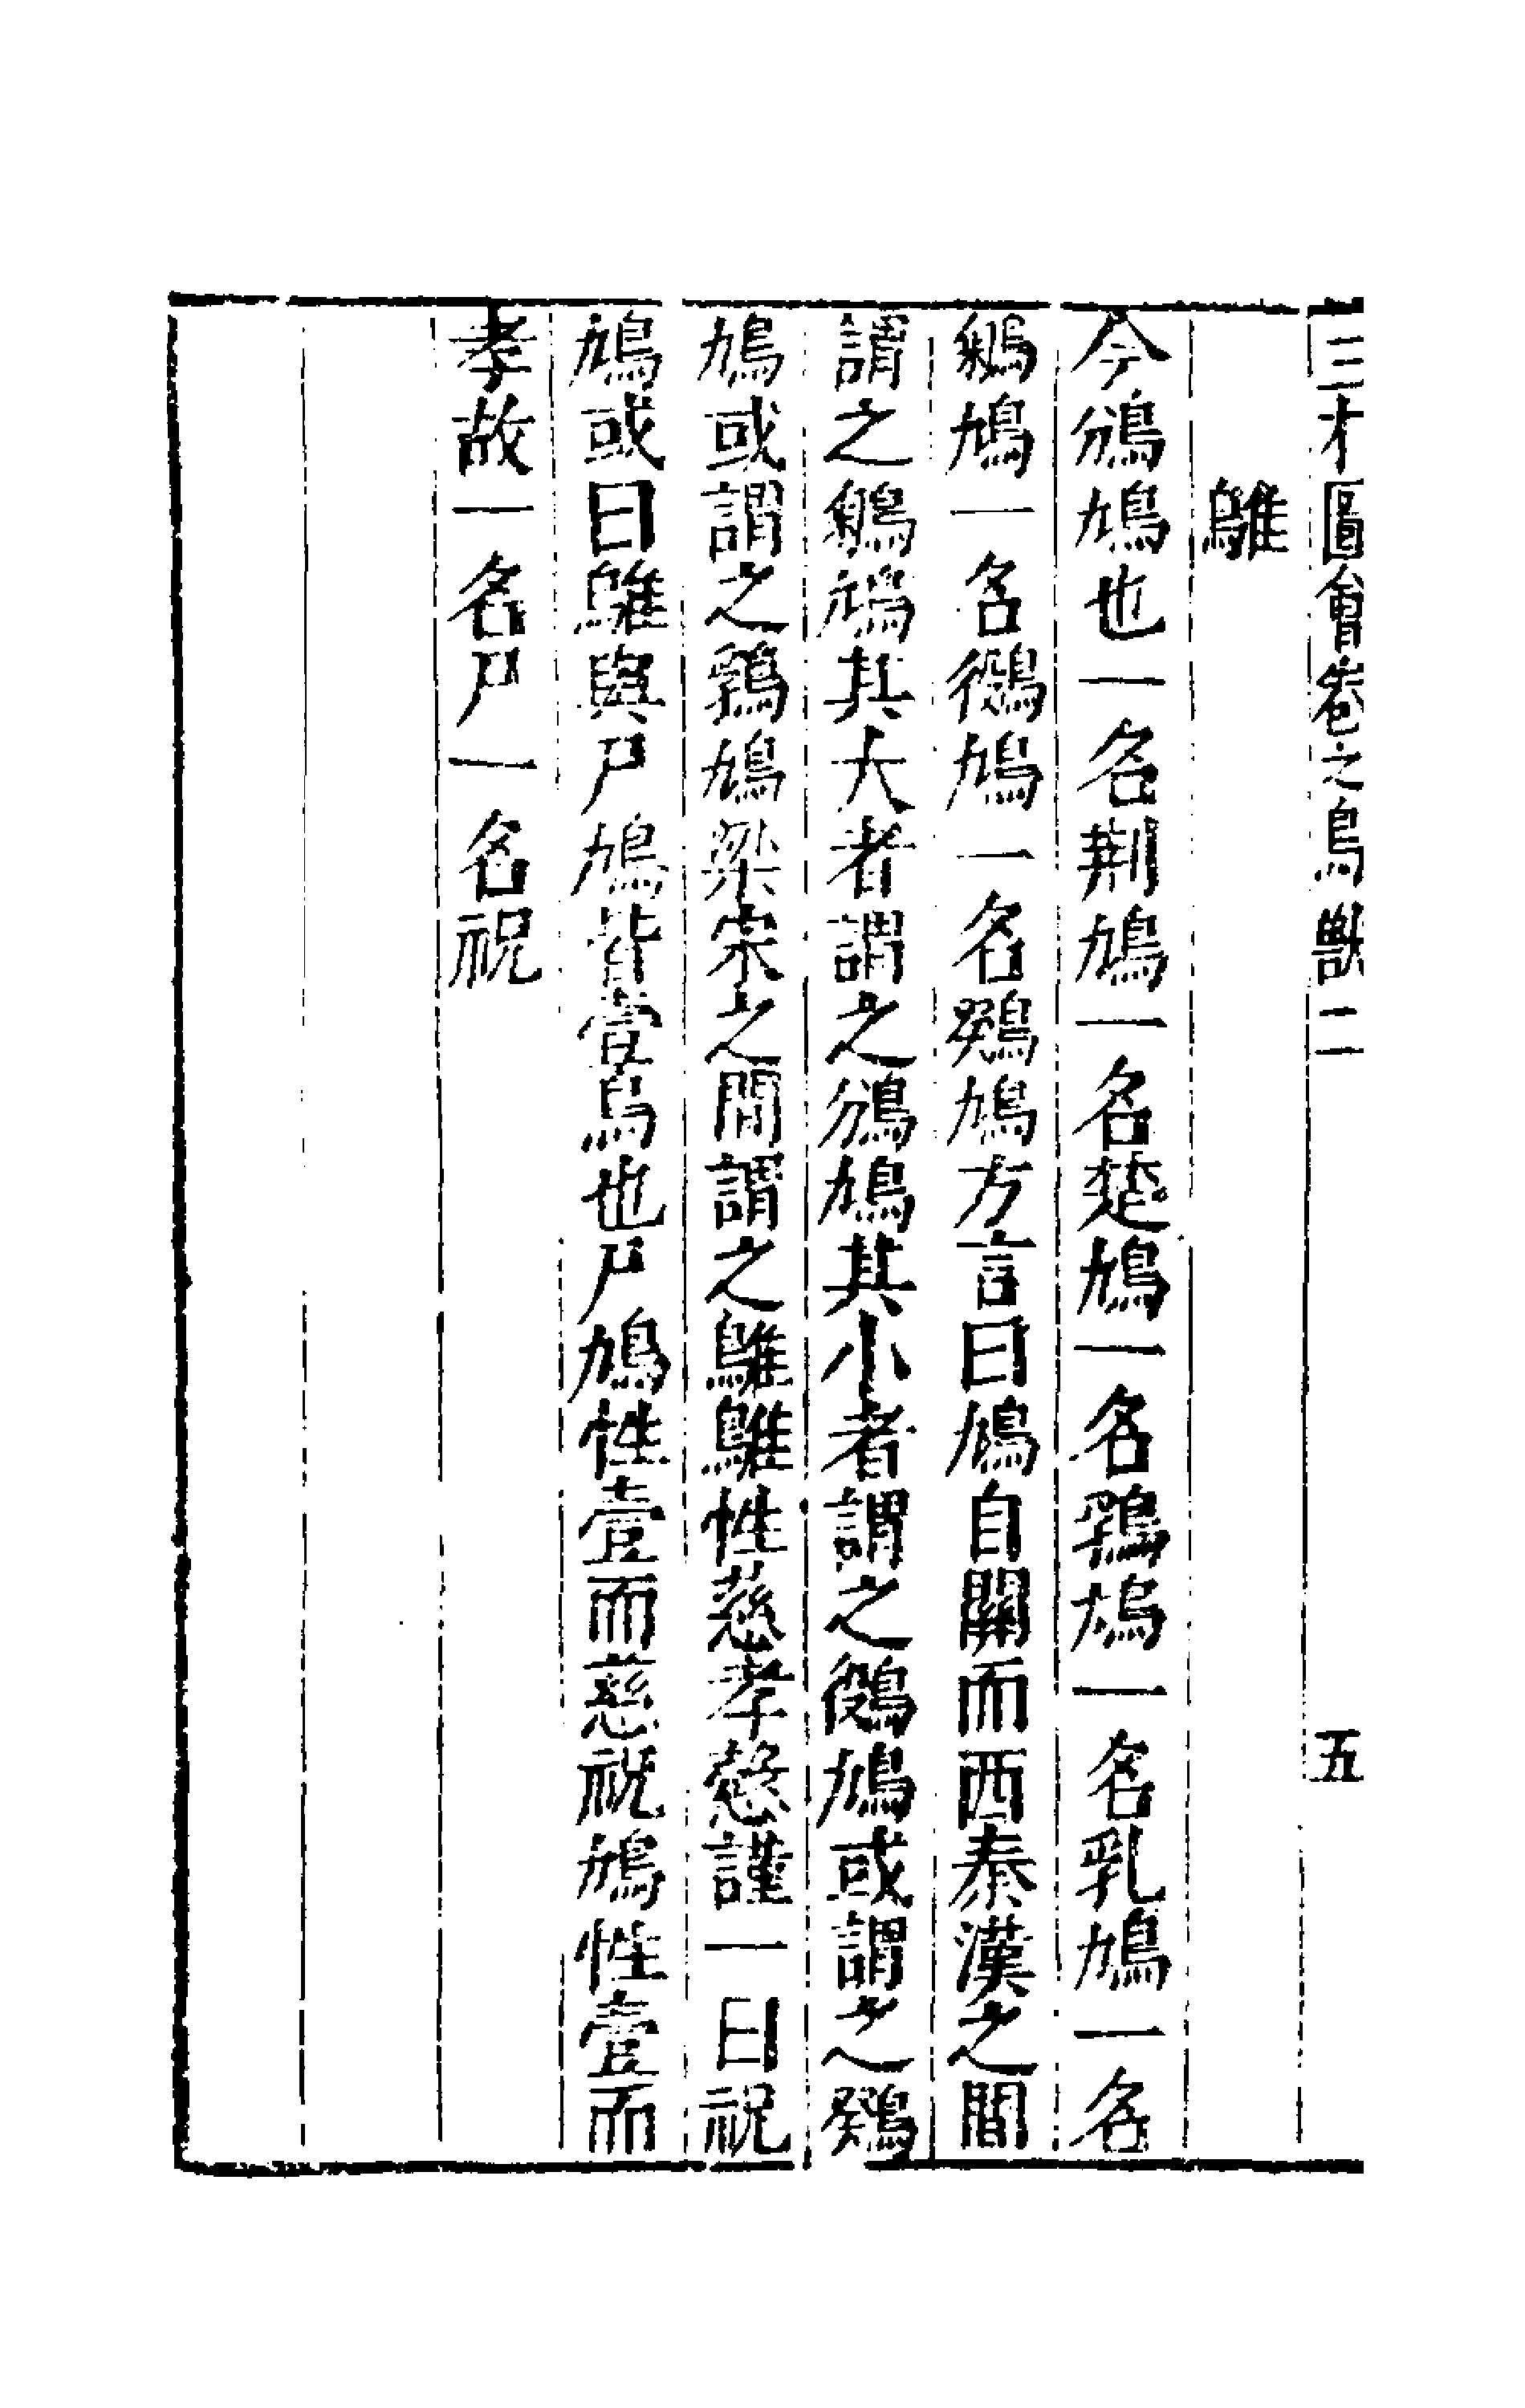 三才圖會卷之鳥獸二　五
鵻
今鳻鳩也一名荆鳩一名楚鳩一名鶏鳩一名乳鳩一名
鳩一名鳩一名鵖鳩方言曰鳩自關而西秦漢之間
謂之鳩其大者謂之鳻鳩其小者謂之鳩或謂之
鳩或謂之鳩梁宋之間謂之鵻鵻性慈孝慤謹一曰祝
鳩或曰鵻與尸鳩皆壹鳥也尸鳩性壹而慈祝鳩性壹而
孝故一名尸一名祝